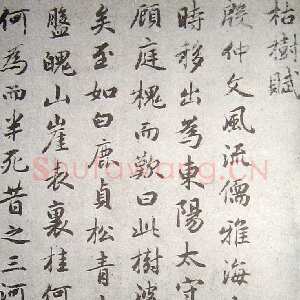 枯樹賦
殷仲文風流儒雅海
時移出為東陽太守
顧庭槐而歎曰此樹婆
矣至如白鹿貞松青
盤魄山崖表裏桂何
何為而半死昔之三河
Shufawang.CN